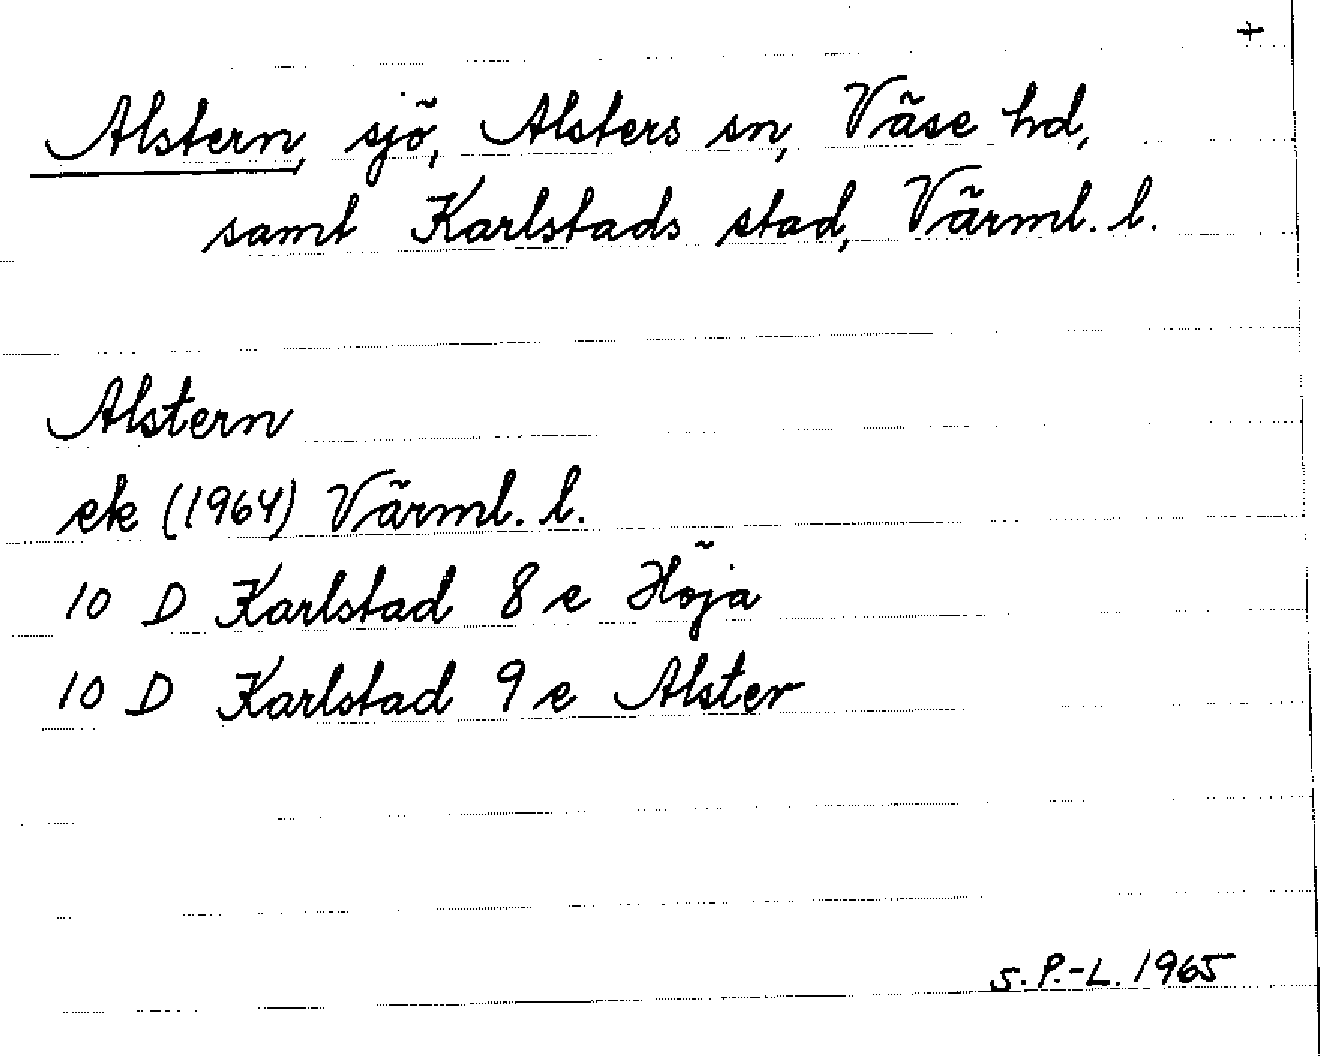 +
Alstern, sjö, Alsters sn, Väse hd,
samt Karlstads stad, Värml. l.
Alstern
ek (1964) Värml. l.
10 D Karlstad 8 e Höja
10 D Karlstad 9 e Alster
S. P.-L. 1965